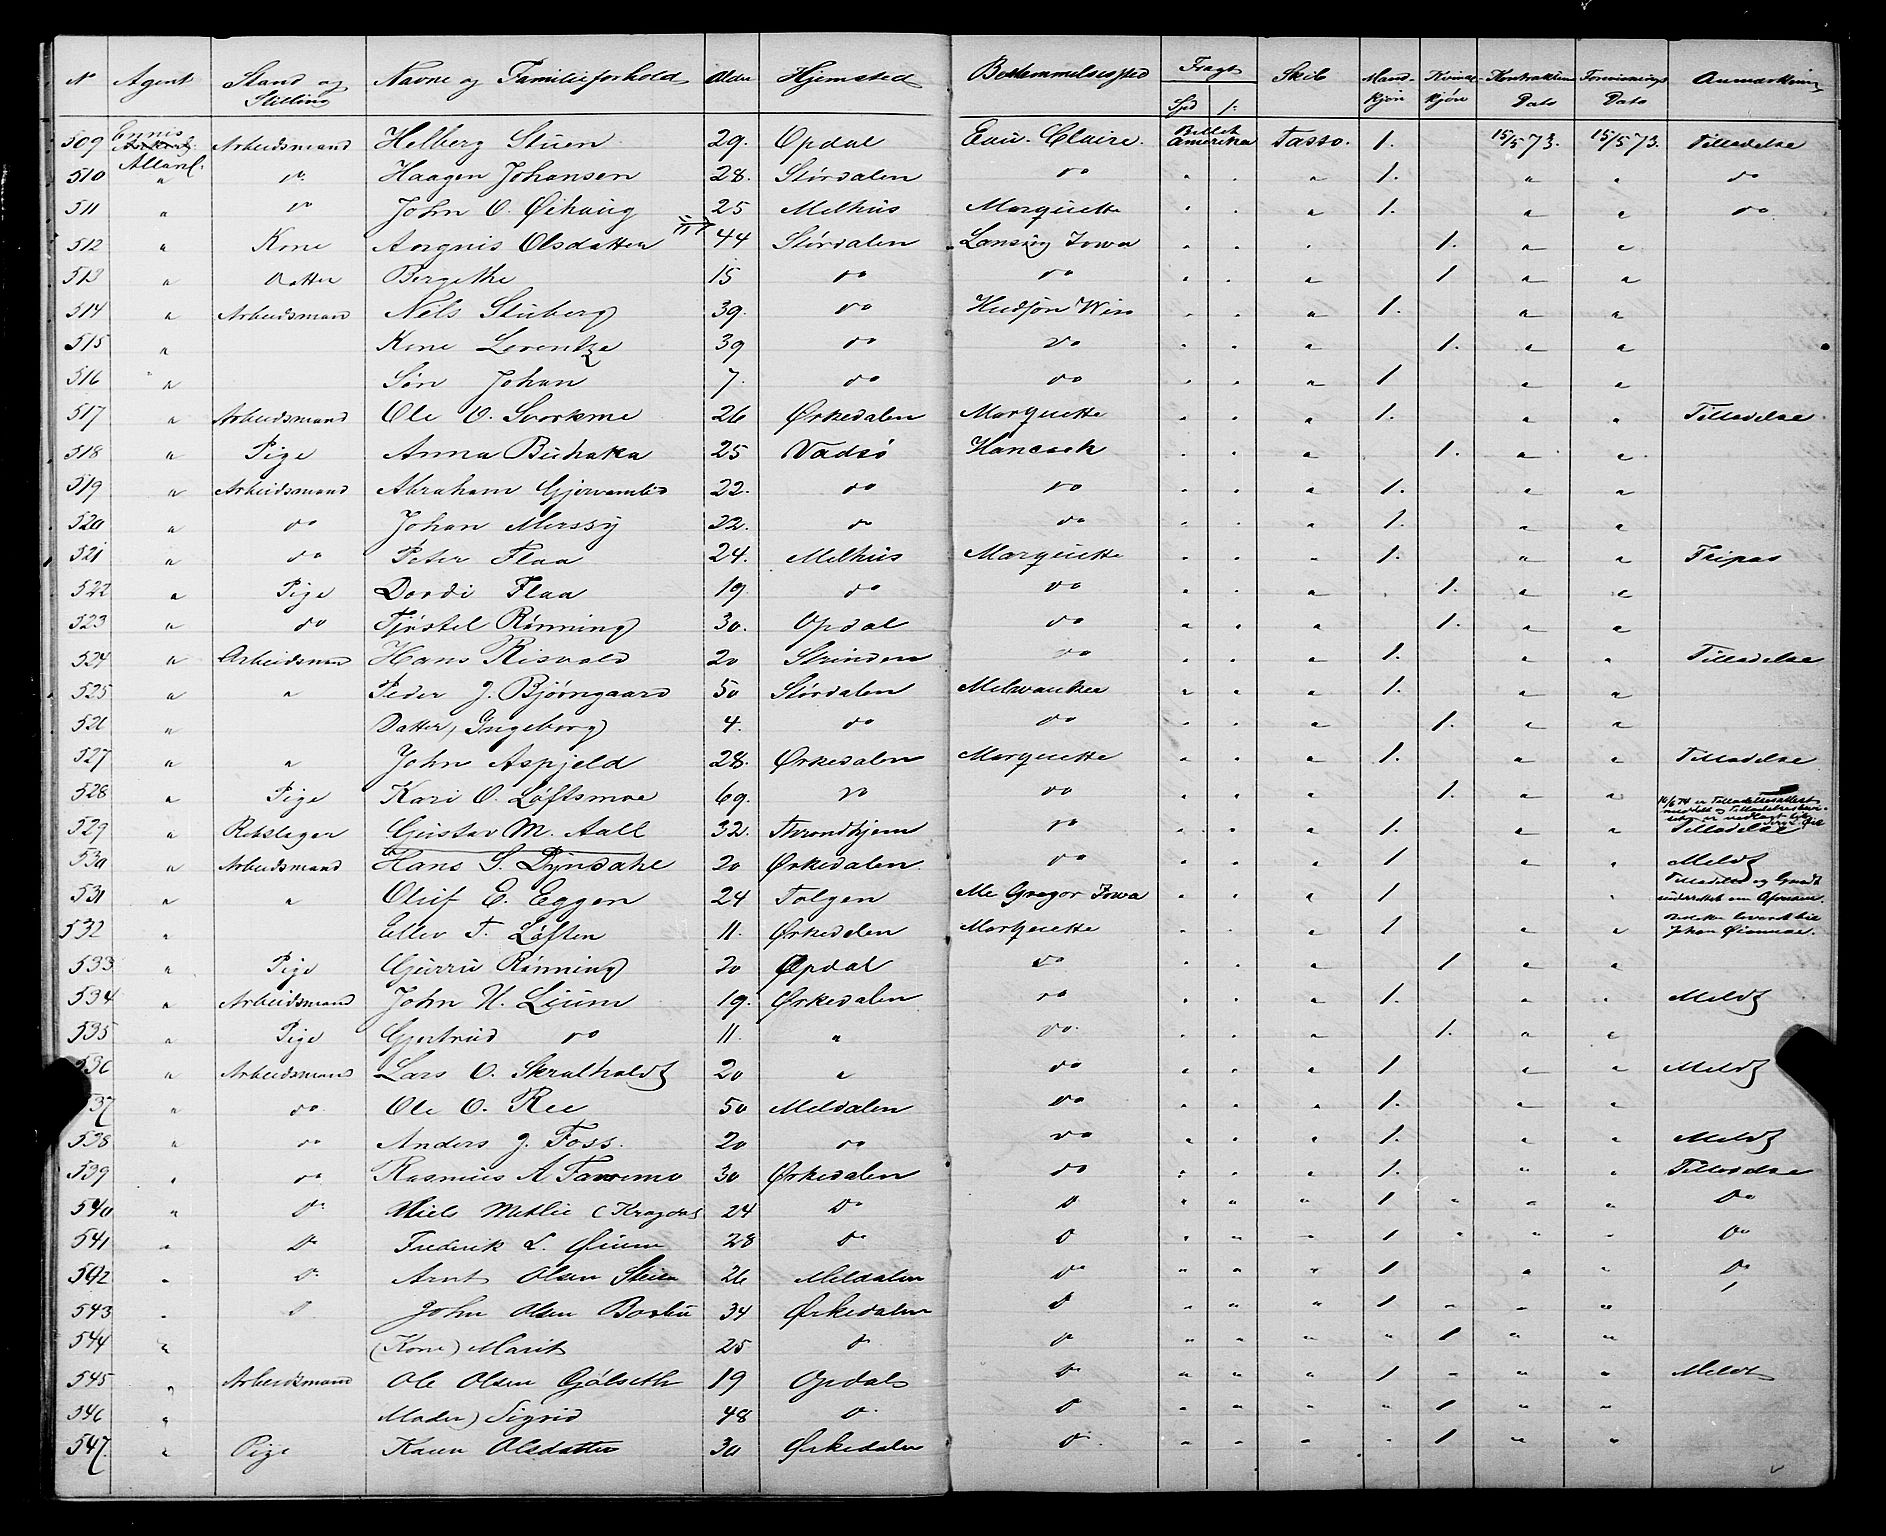 N Agent Stand og Stilling Navne og Familieforhold Alder Hjemsted Bestemmelsessted Fragt Spd ſ: Skib Mandkjøn Kvindekjøn Kontraktens Dato Forevisnings Dato Anmærkning
509 Ennis Arbeidsmand Helberg Stuen 29. Opdal Eau. Claire. Billet Amerika Tasso. 1. 15/5 73. 15/5 73. Tilladelse
510 Allanl. " do Haagen Johansen 28. Størdalen do " " " 1. " " do
511 " do John O. Øihaug 25 Melhus Marquette " " " 1. " " do
512 " Kone Aagnis Olsdatter 44 Størdalen Lansing Iowa " " " 1. " "
513 " Datter Bergithe 15 do do " " " 1 " "
514 " Arbeidsmand Nels Stuberg 39. do Hudson Wisc " " " 1. " "
515 " Kone Lorentze 39 do do " " " 1. " "
516 " Søn Johan 7. do do " " " 1 " "
517 " Arbeidsmand Ole O. Svorkmo 26 Ørkedalen Marquette " " " 1. " " Tilladelse
518 " Pige Anna Buhaka 25 Vadsø Hancock " " " 1. " "
519 " Arbeidsmand Abraham 22. do do " " " 1. " "
520 " do Johan Merssy 22. do do " " " 1. " "
521 " do Peter Flaa 24. Melhus Marquette " " " 1. " " Fripas
522 " Pige Dordi Flaa 19. do do " " " 1. " "
523 " do Tjøstel Rønning 30. Opdal do " " " 1. " "
524 " Arbeidsman Hans Risvold 20 Strinden do " " " 1. " " Tilladelse
525 " " Peder J. Bjørngaard 50 Størdalen Melwaukee " " " 1. " "
526 " Datter, Ingeborg 4. do do " " " 1. " "
527 " " John Aspjeld 28. Ørkedalen Marquette " " " 1. " " Tilladelse
528 " Pige Kari O. Løftsmoe 69. do do " " " 1. " "
529 " Rebslager Gustav M. Aall 32. Throndhjem do " " " 1. " " 16/6 74 er Tilladelsesattest Tilladelse
530 " Arbeidsmand Hans S. Dyndahl 20 Ørkedalen. do " " " 1 " " Meldt
531 " " Oluf E. Eggen 24 Tolgen Mc Gregor Iowa " " " 1 " Tilladelse og
532 " Ellev T. Løften 11. Ørkedalen Marquette " " " 1 " "
533 " Pige Guri Rønning 20 Opdal do " " " 1 " "
534 " Arbeidsmand John H. Lium 19. Ørkedalen do " " " 1. " " Meldt
535 " Pige Gjertrud do 11. " do " " " 1. " "
536 " Arbeidsmand Lars O. Skralholdt 20 " do " " " 1 " " Meldt
537 " do Ole O. Ree 50 Meldalen do " " " 1. " "
538 " do Anders J. Foss. 20 do do " " " 1. " " Meldt
539 " do Rasmus A 30 Ørkedalen do " " " 1. " " Tilladelse
540 " do Niels Metlie (Kragdal 24 do do " " " 1 " " " Do
541 " do Frederik L. Øium 28 do do " " " 1 " " " Do
542 " do Arnt Olsen Steien 26 Meldalen do " " " 1 " " Do
543 " do John Olsen Bosbu 34 Ørkedalen do " " " 1 " " "
544 " (Kone) Marit 25 do do " " " " 1 " "
545 " Arbeidsmand Ole Olsen Gjølseth 19 Opdal do " " " 1 " " " Meldt
546 " Moder) Sigrid 48 do do " " " " 1 " "
547. " Pige Karen Olsdatter 30 Ørkedalen do " " " " 1 " "